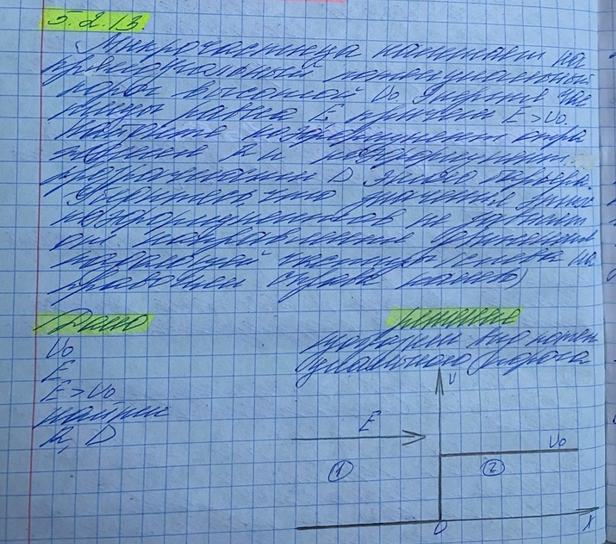 5.2.13.
Микрочастица налетает на
прямоугольный потенциальный
порог высотой U₀. Энергия час
тицы равна E, причём E > U₀.
Найдите коэффициент отра
жения R и коэффициент
прозрачности D этого барьера.
Убедитесь, что значения этих
коэффициентов не зависят
от направления движения
падающей частицы (слева на
право или справа налево)
Дано
U₀
E
E > U₀
Найти
R, D
Решение
потен
циального порога
U
E
U₀
1
2
0
X